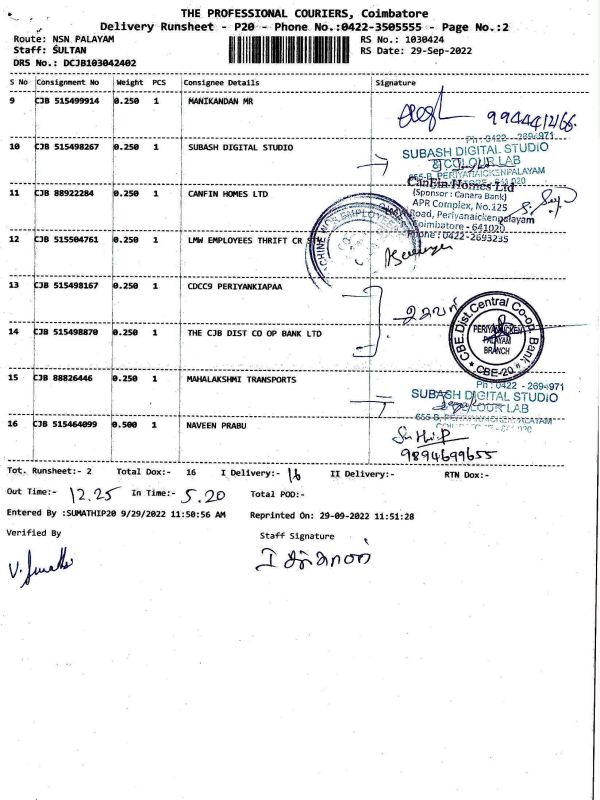 THE PROFESSIONAL COURIERS, Coimbatore
Delivery Runsheet - P20 - Phone No.:0422-3505555 - Page No.:2
Route: NSN PALAYAM RS No.: 1030424
Staff: SULTAN RS Date: 29-Sep-2022
DRS No.: DCJB103042402
S No Consignment No Weight PCS Consignee Details Signature
9 CJB 515499914 0.250 1 MANIKANDAN MR
10 CJB 515498267 0.250 1 SUBASH DIGITAL STUDIO
SUBASH DIGITAL STUDIO
& COLOUR LAB
655-B, PERIYANAICKENPALAYAM
11 CJB 88922284 0.250 1 CANFIN HOMES LTD
CanFin Homes Ltd
(Sponsor : Canara Bank)
APR Complex, No.125
Road, Periyanaickenpalayam
Coimbatore - 641020
Phone : 0422-2693235
12 CJB 515504761 0.250 1 LMW EMPLOYEES THRIFT CR
13 CJB 515498167 0.250 1 CDCC9 PERIYANKIAPAA
14 CJB 515498870 0.250 1 THE CJB DIST CO OP BANK LTD
CBE. Dist. Central Co-op. Bank
PERIYANAICKEN
PALAYAM
BRANCH
CBE-20
15 CJB 88826446 0.250 1 MAHALAKSHMI TRANSPORTS
Ph : 0422 - 2694971
SUBASH DIGITAL STUDIO
COLOUR LAB
16 CJB 515464099 0.500 1 NAVEEN PRABU
9894699655
Tot. Runsheet:- 2 Total Dox:- 16 I Delivery:- 16 II Delivery:- RTN Dox:-
Out Time:- 12.25 In Time:- 5.20 Total POD:-
Entered By :SUMATHIP20 9/29/2022 11:50:56 AM Reprinted On: 29-09-2022 11:51:28
Verified By Staff Signature